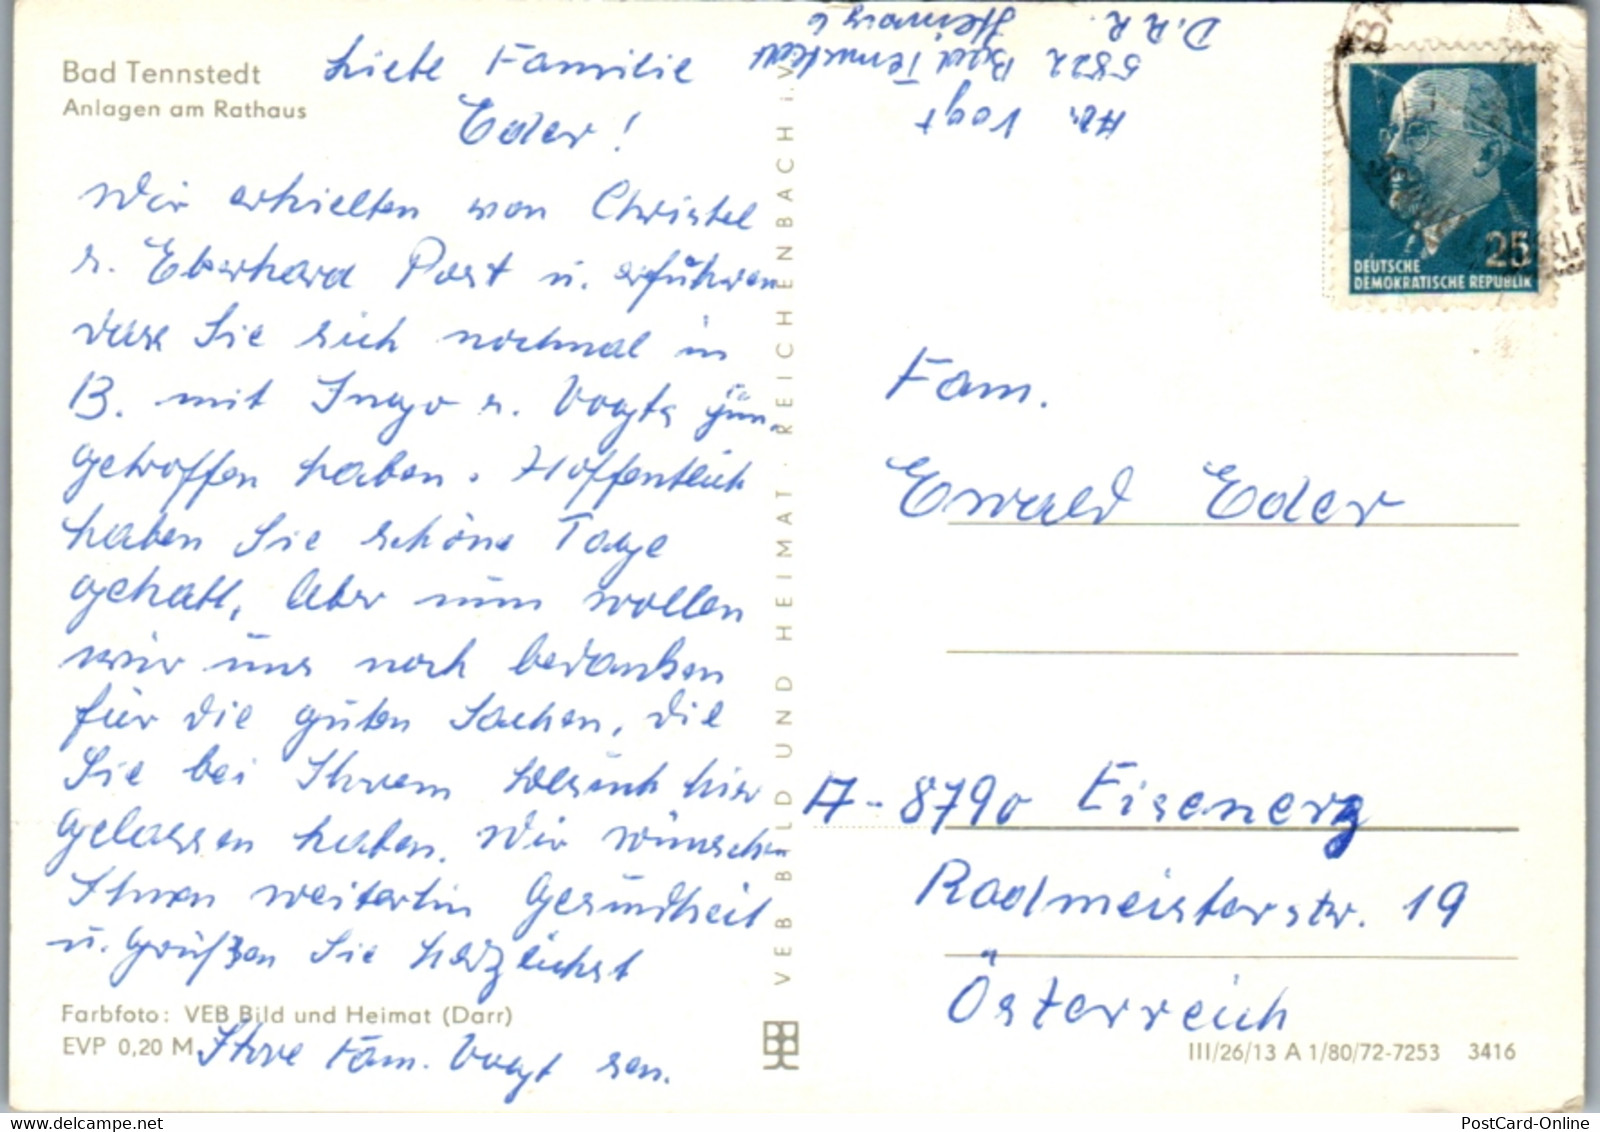 Bad Tennstedt
Anlagen am Rathaus
Liebe Familie
Eder!
Wir erhielten von Christel
u. Eberhard Post u. erfuhren
dass Sie sich nochmal in
B. mit Ingo u. Vogts jun.
getroffen haben. Hoffentlich
haben Sie schöne Tage
gehabt. Aber nun wollen
wir uns noch bedanken
für die guten Sachen, die
Sie bei Ihrem Besuch hier
gelassen haben. Wir wünschen
Ihnen weiterhin Gesundheit
u. grüßen Sie herzlichst
Ihre Fam. Vogt sen.
Farbfoto: VEB Bild und Heimat (Darr)
EVP 0,20 M
VEB BILD UND HEIMAT REICHENBACH i. V.
Vogt
5822 Bad Tennstedt
D.D.R.
25
DEUTSCHE
DEMOKRATISCHE REPUBLIK
Fam.
Ewald Eder
A-8790 Eisenerz
Radmeisterstr. 19
Österreich
III/26/13 A 1/80/72-7253 3416
PostCard-Online